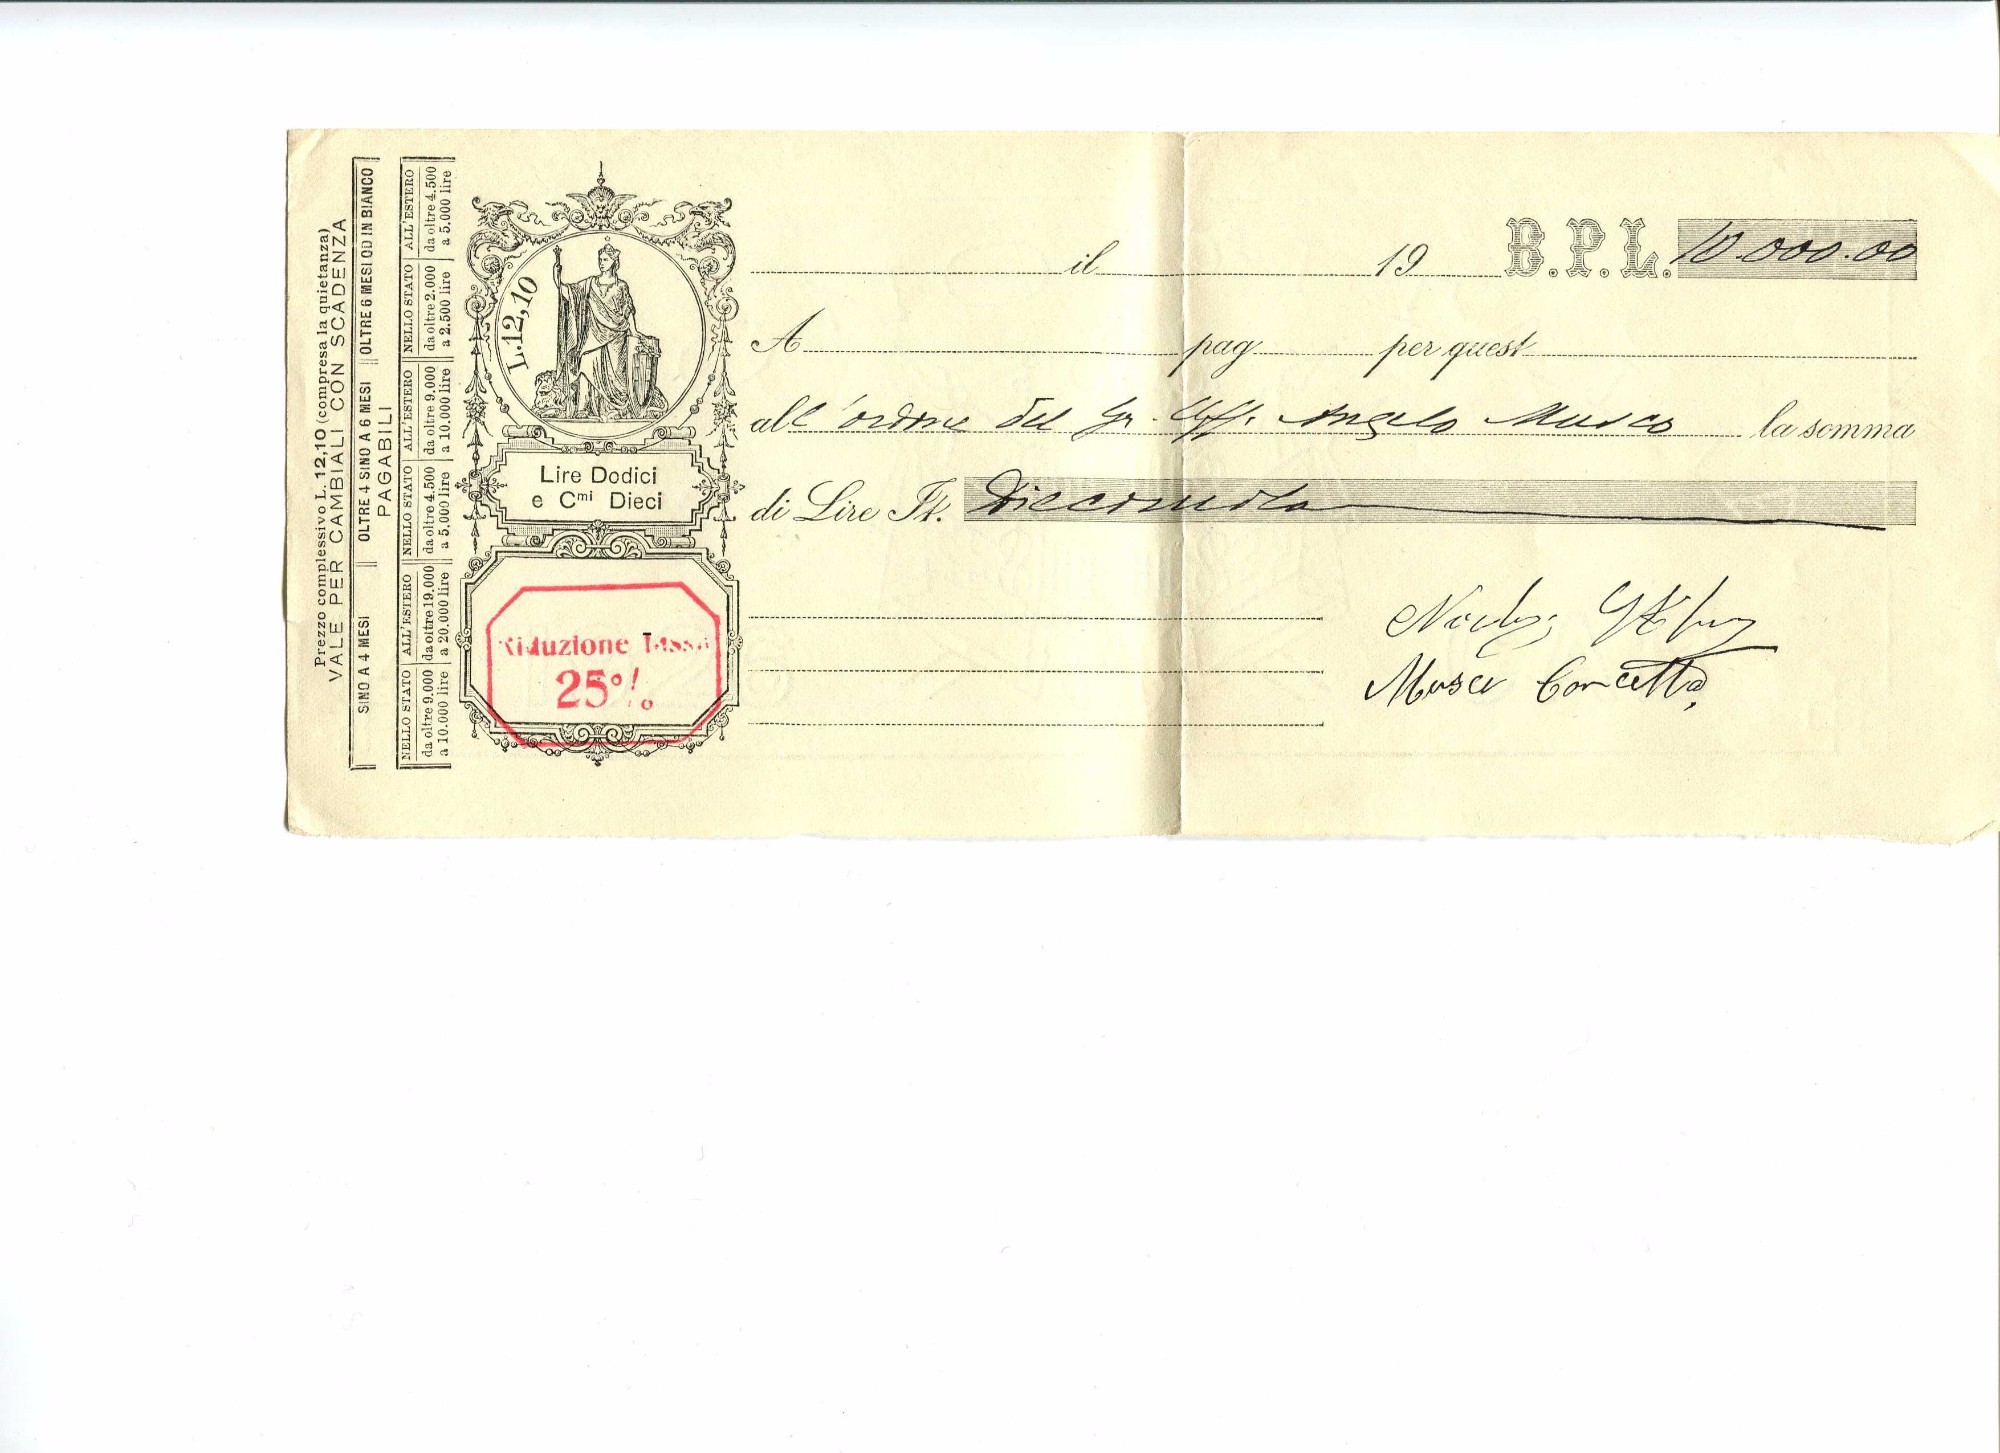 Prezzo complessivo L. 12,10 (compresa la quietanza)
VALE PER CAMBIALI CON SCADENZA
SINO A 4 MESI OLTRE 4 SINO A 6 MESI OLTRE 6 MESI OD IN BIANCO
PAGABILI
NELLO STATO ALL'ESTERO NELLO STATO ALL'ESTERO NELLO STATO ALL'ESTERO
da oltre 9.000 da oltre 19.000 da oltre 4.500 da oltre 9.000 da oltre 2.000 da oltre 4.500
a 10.000 lire a 20.000 lire a 5.000 lire a 10.000 lire a 2.500 lire a 5.000 lire
L.12,10
Lire Dodici
e Cmi Dieci
Riduzione Tassa
25%
il 19 B.P.L. 10.000.00
A pag per quest
all'ordine del Gr. Uff. Angelo Musco la somma
di Lire It. Diecimila
Musco Concetta